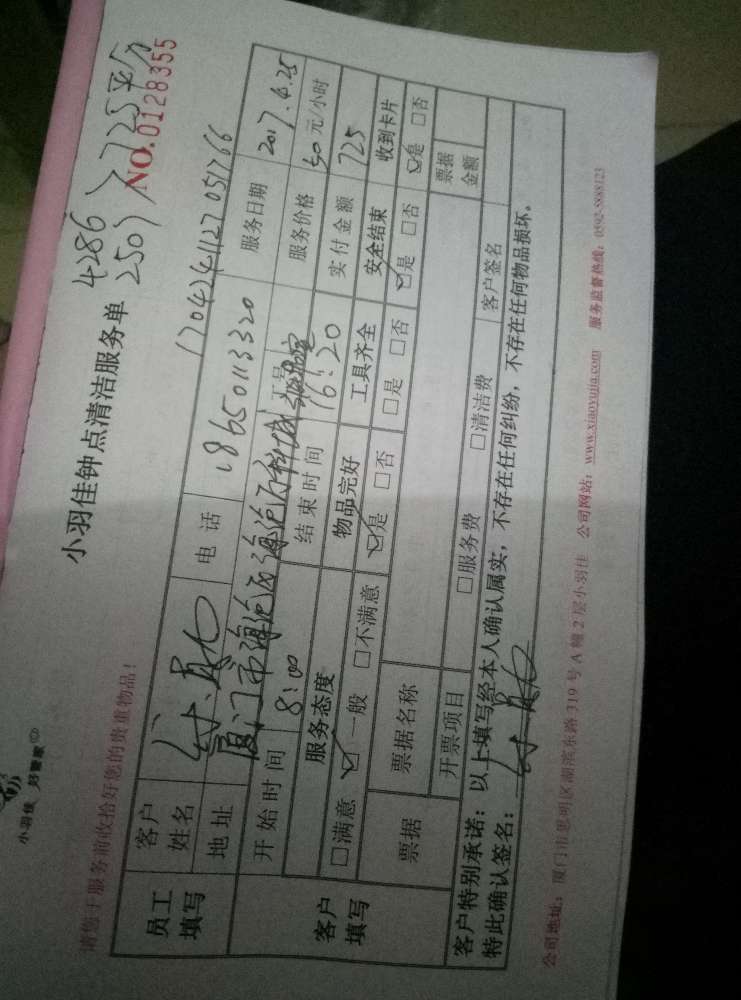 小羽佳 好管家
小羽佳钟点清洁服务单
4286
2501
725平方
NO.0128355
请您于服务前收拾好您的贵重物品！
1704241127051766
员工填写
客户姓名
电话
18650113320
服务日期
2017.4.25
地址
厦门市海沧区海沧
工号
服务价格
50元/小时
客户填写
开始时间
8:00
结束时间
16:20
实付金额
725
服务态度
物品完好
工具齐全
安全结束
收到卡片
□满意 ☑一般 □不满意
☑是 □否
□是 □否
☑是 □否
☑是 □否
票据
票据名称
票据金额
开票项目
□服务费 □清洁费
客户签名
客户特别承诺：以上填写经本人确认属实，不存在任何纠纷，不存在任何物品损坏。
特此确认签名：
公司地址：厦门市思明区湖滨东路319号A幢2层小羽佳 公司网站：www.xiaoyujia.com 服务监督热线：0592-5888123